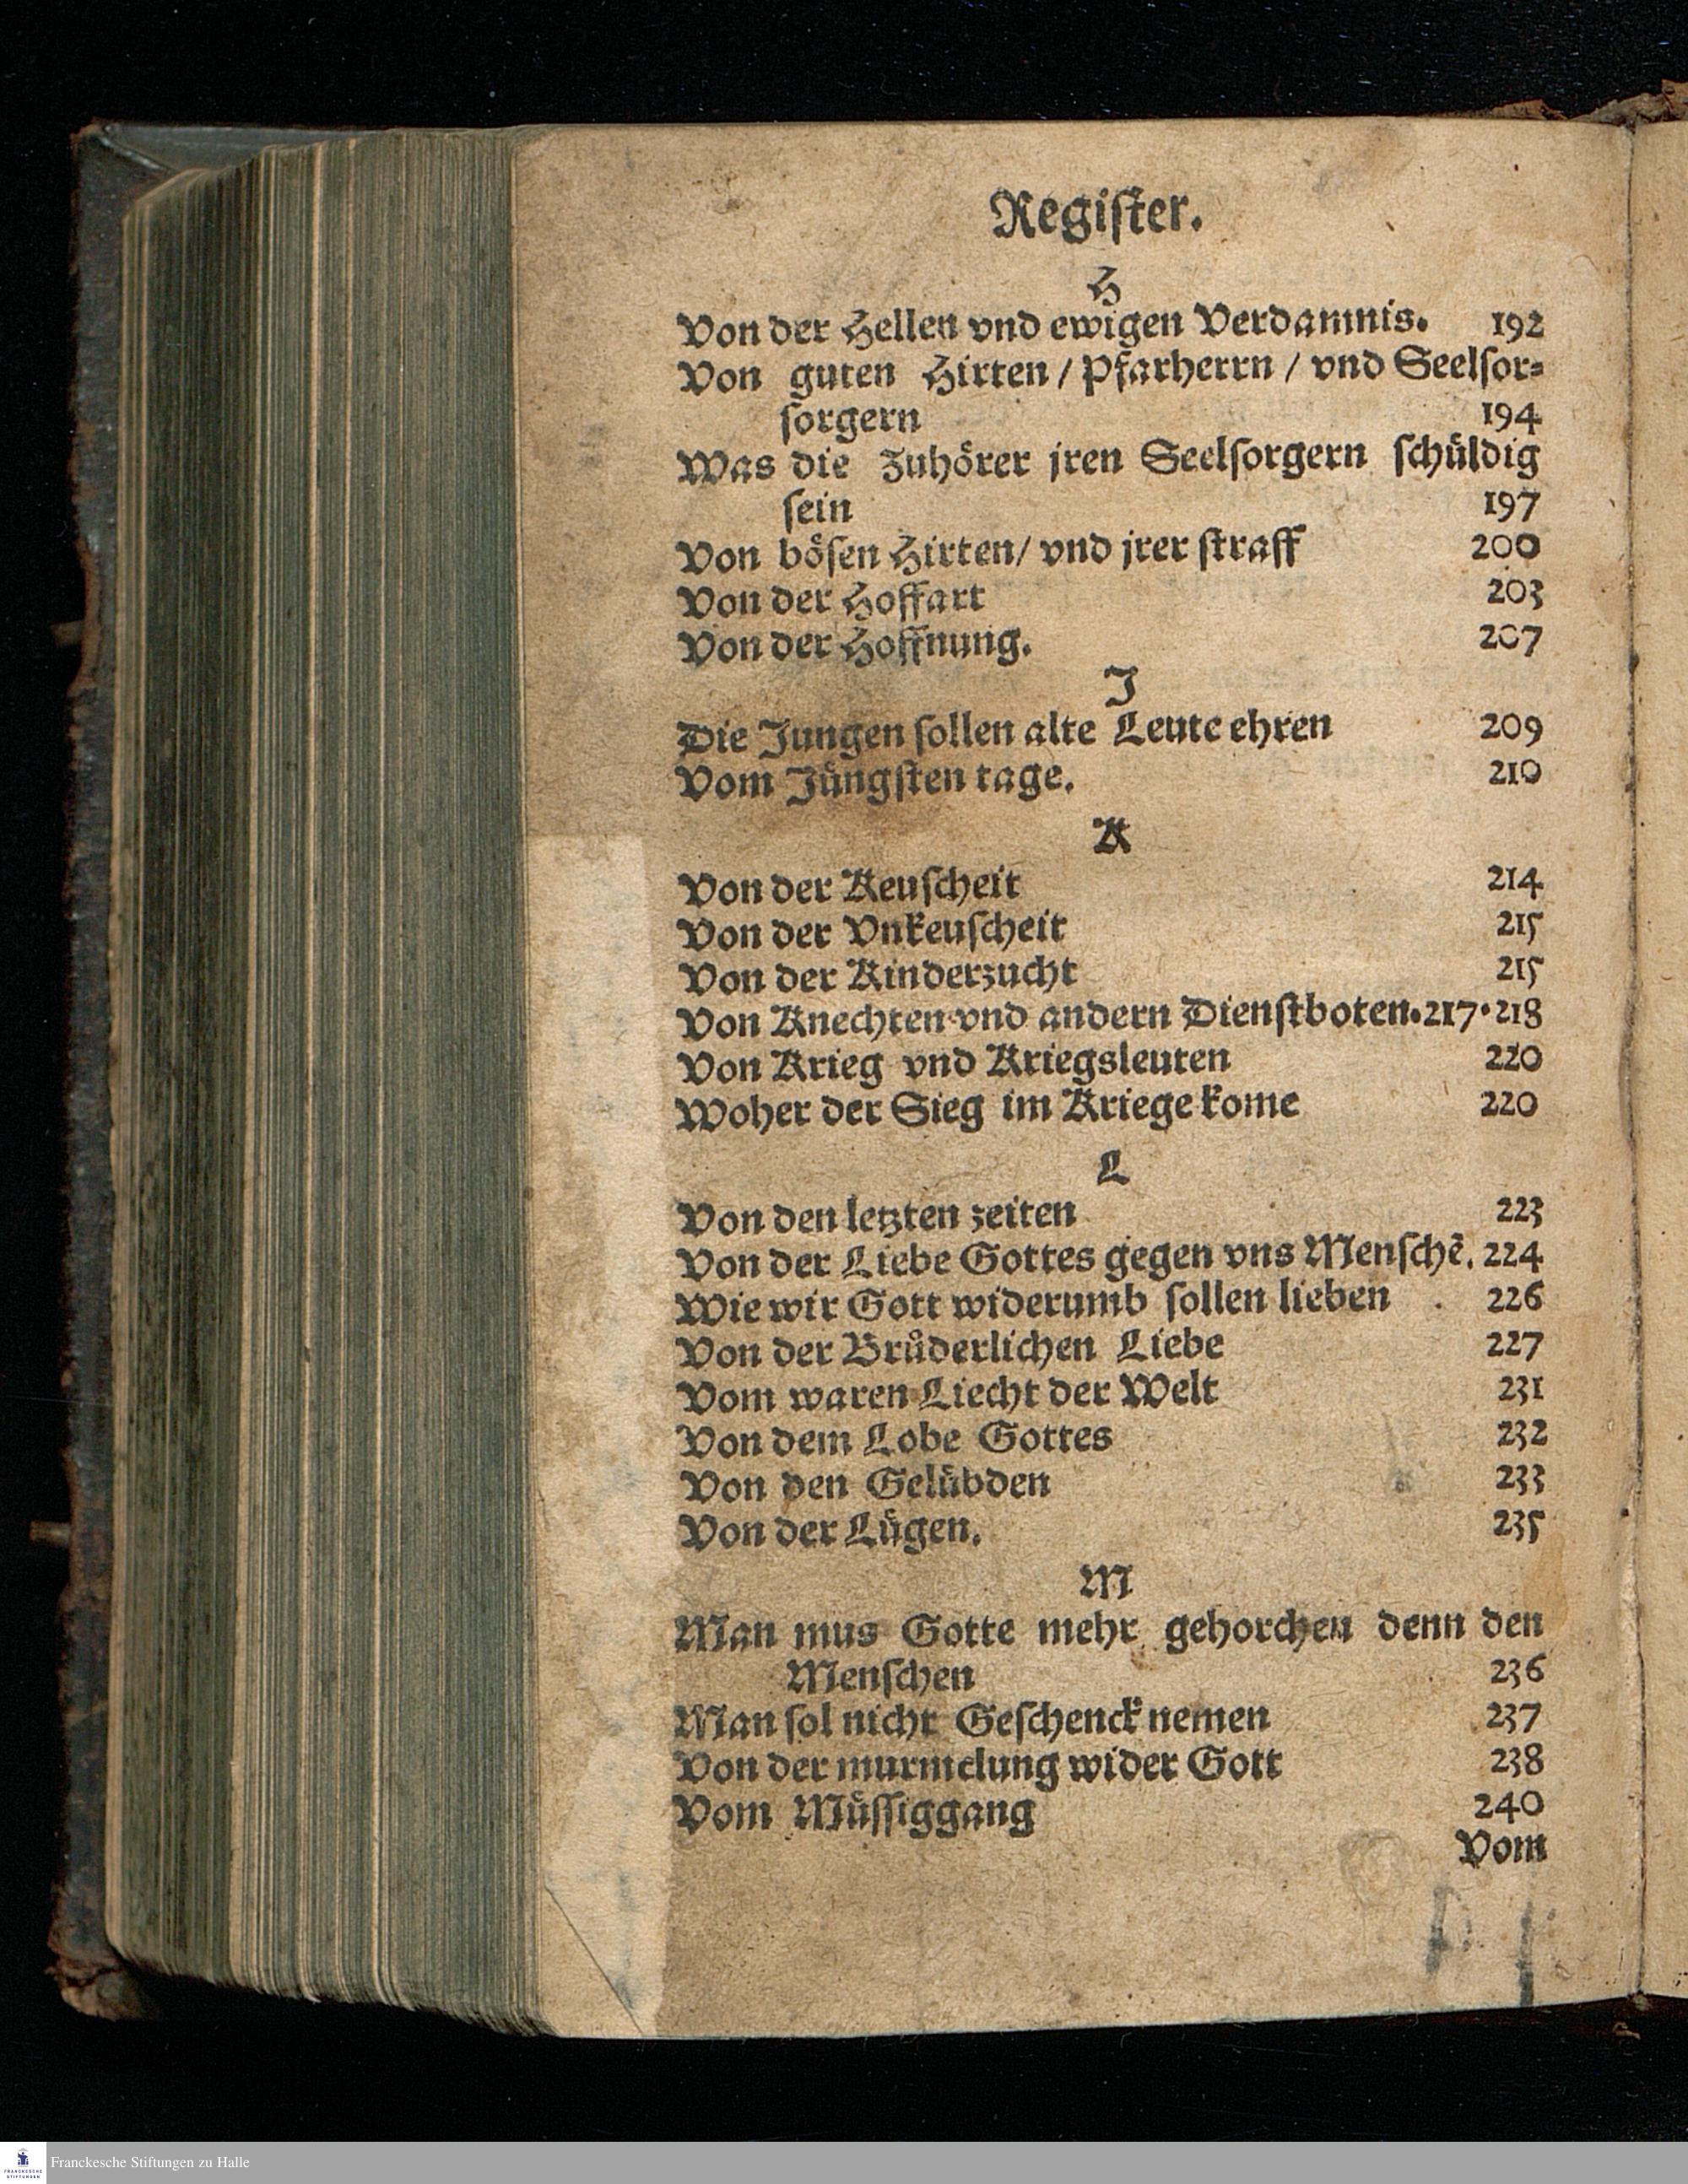 Regiſter.
H
Von der Hellen vnd ewigen Verdamnis. 192
Von guten Hirten / Pfarherrn / vnd Seelſor⸗
ſorgern 194
Was die Zuhörer jren Seelſorgern ſchüldig
ſein 197
Von böſen Hirten/ vnd jrer ſtraff 200
Von der Hoffart 203
Von der Hoffnung. 207
J
Die Jungen ſollen alte Leute ehren 209
Vom Jüngſten tage. 210
K
Von der Keuſcheit 214
Von der Vnkeuſcheit 215
Von der Kinderzucht 215
Von Knechten vnd andern Dienſtboten. 217. 218
Von Krieg vnd Kriegsleuten 220
Woher der Sieg im Kriege kome 220
L
Von den letzten zeiten 223
Von der Liebe Gottes gegen vns Menſchẽ. 224
Wie wir Gott widerumb ſollen lieben . 226
Von der Brůderlichen Liebe 227
Vom waren Liecht der Welt 231
Von dem Lobe Gottes 232
Von den Gelübden 233
Von der Lügen. 235
M
Man mus Gotte mehr gehorchen denn den
Menſchen 236
Man ſol nicht Geſchenck nemen 237
Von der murmelung wider Gott 238
Vom Müſſiggang 240
Vom
FRANCKESCHE
STIFTUNGEN
Franckesche Stiftungen zu Halle